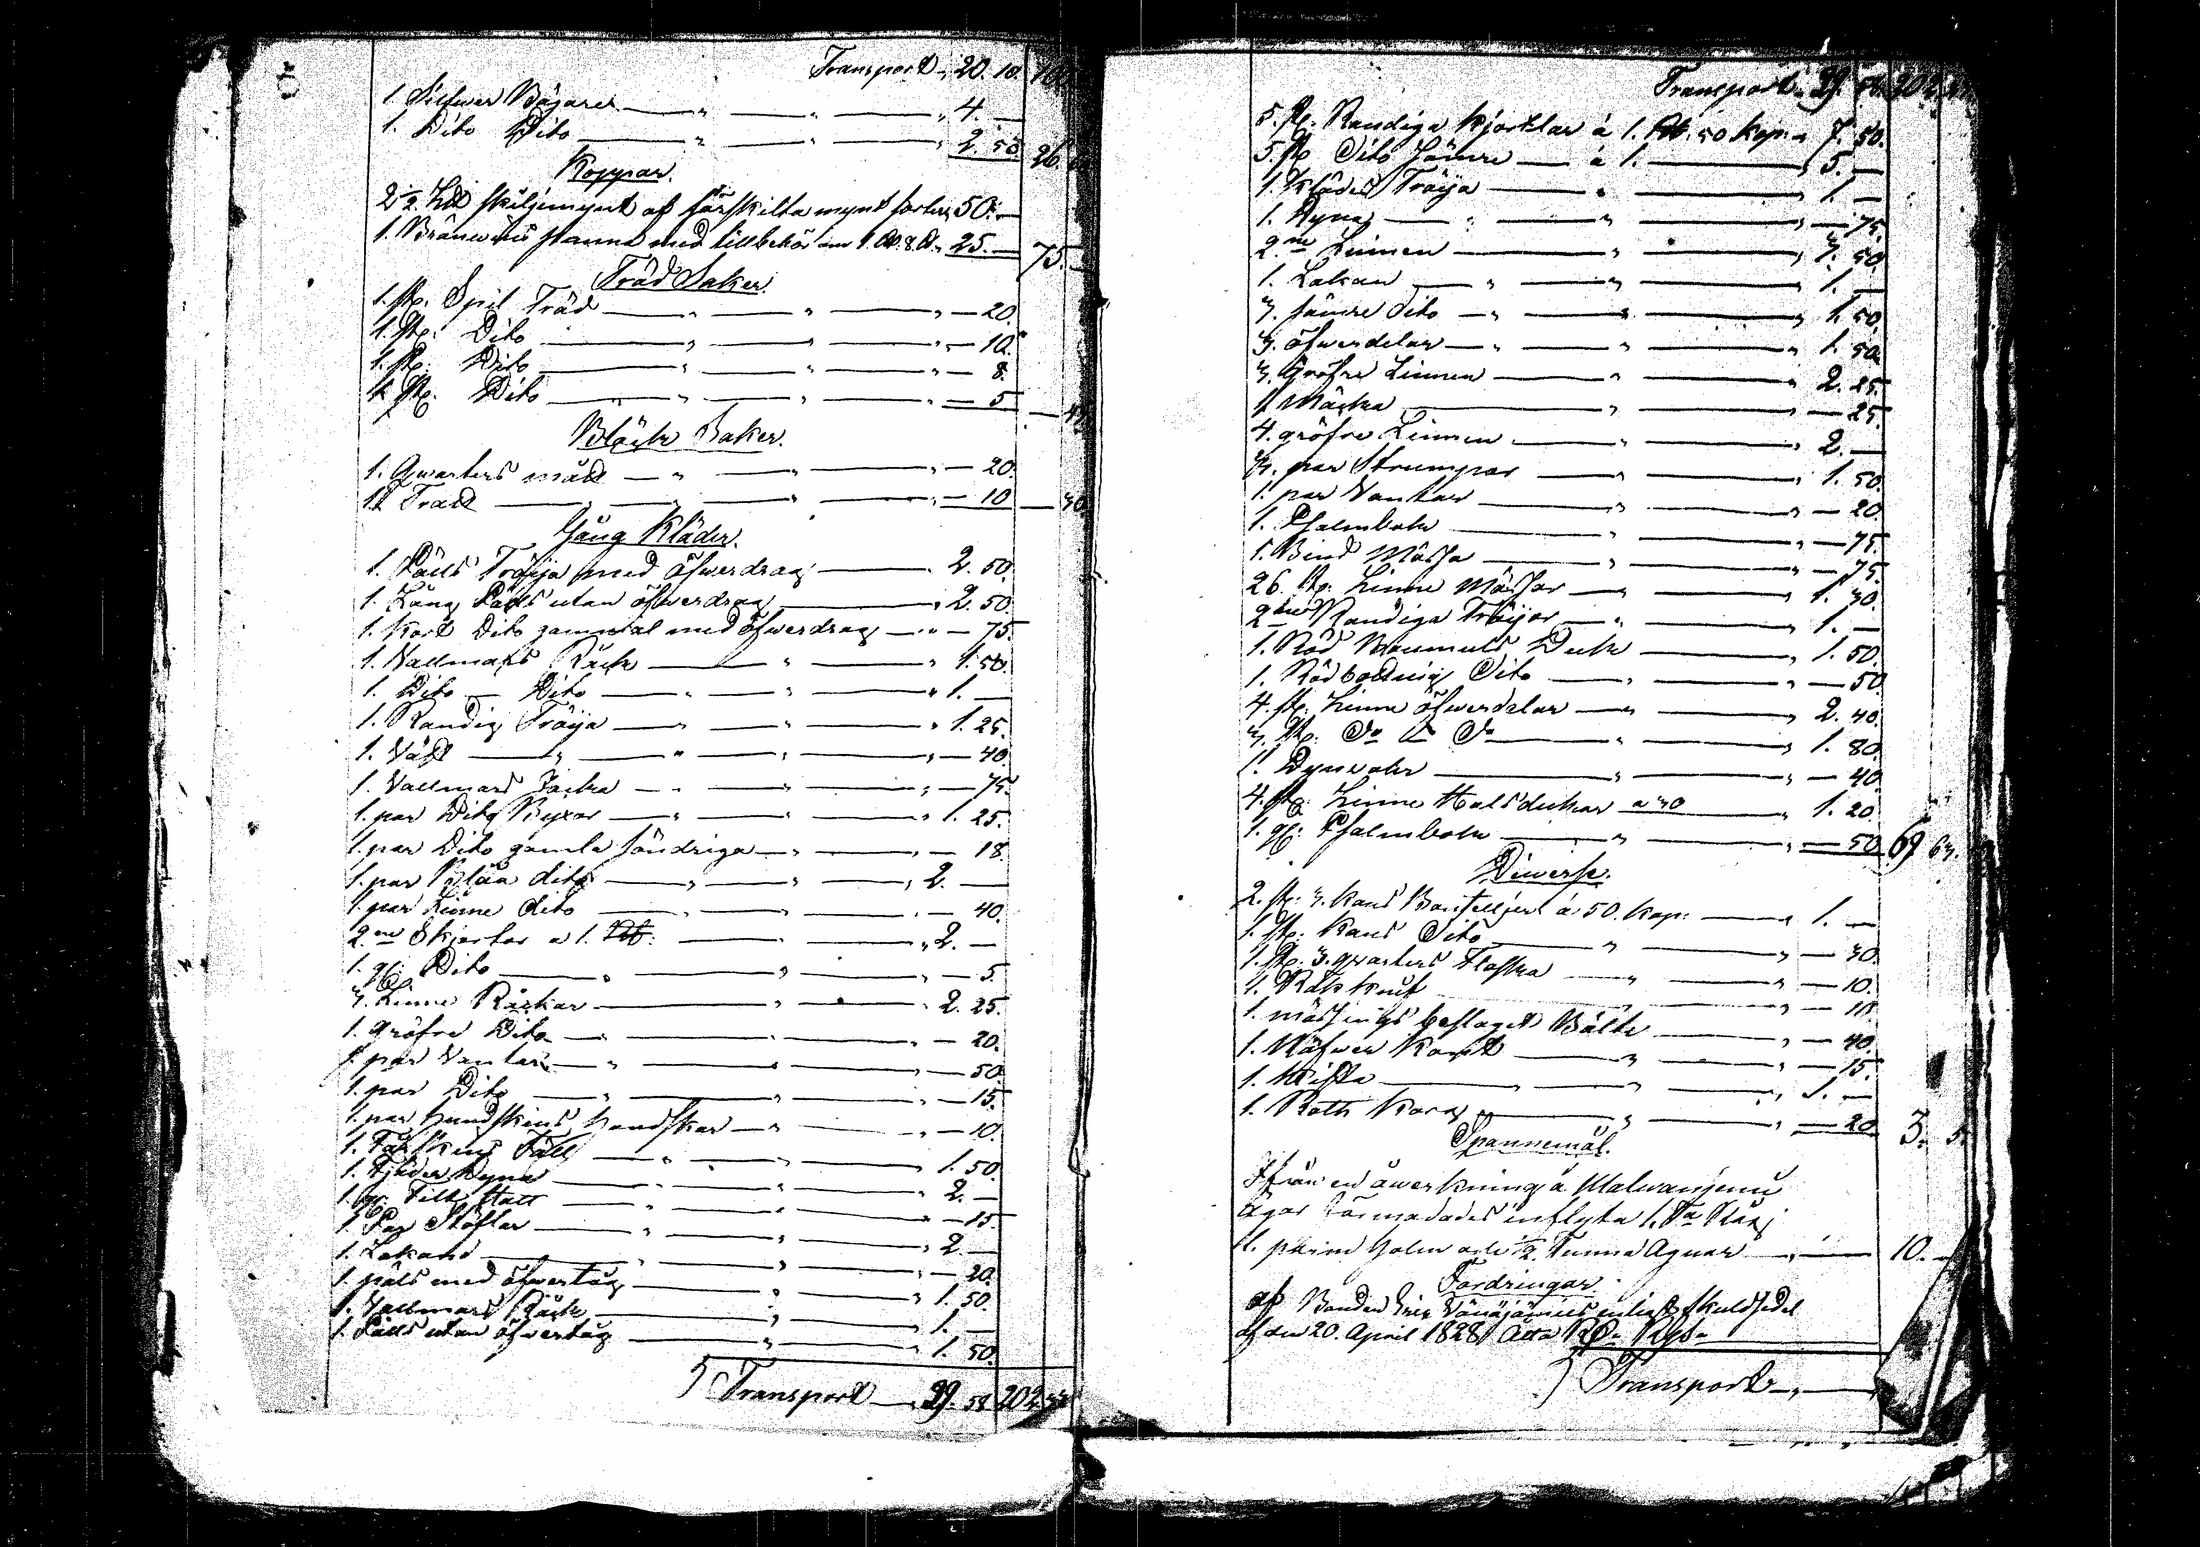 Transport 20. 10.
1. Silfwer Bägare 4. —
1. Dito Dito 2. 50. 26.
Koppar.
2½ L℔ skiljemynt af särskilta mynt sorter 50. —
1. Bränwins panna med tillbehör om 25. — 75. —
Träd Saker.
1. st. Spil Träd — 20.
1. st. Dito — 10.
1. st. Dito — 8.
1. st. Dito — 5
Bläck Saker.
1. Qwarters mått — 20.
1. Tratt — 10 — 30.
Gång Kläder.
1. Päls Tröija med öfwerdrag 2. 50.
1. Lång Päls utan öfwerdrag 2. 50.
1. Kort Dito gammal med öfwerdrag — 75.
1. Vallmars Råck 1. 50.
1. Dito Dito 1. —
1. Randig Tröija 1. 25.
1. Väst — 40.
1. Vallmars Jacka — 75.
1. par Dito Byxor 1. 25.
1. par Dito gamla söndriga — 18.
1. par Blåa dito 2. —
1. par Linne dito — 40.
2ne Skjortor a 1. 2. —
1. gl. Dito — 5.
3. Linne Råckar 2. 25.
1. gröfre Dito — 20.
1. par Vantar — 50.
1. par Dito — 15.
1. par hundskins handskar — 10.
1. Fårskins Fäll 1. 50.
1. Fjäder Dyna 2. —
1. gl. Filt Hatt — 15.
1. Par Stöflar 2. —
1. Lakand — 20.
1. päls med öfwertåg 1. 50.
1. Vallmars Råck 1. —
1. Päls utan öfwertåg 1. 50.
Transport 29. 58 202.
Transport 29. 58. 202.
5. st. Randiga Kjortlar á 1. Rb. 50 kop. 7. 50.
5. st. Dito Sämre á 1. 5. —
1. Klädes Tröija 1. —
1. Dyna — 75.
2ne Linnen 1. 50.
1. Lakan 1. —
3. sämre dito 1. 50.
3. öfwerdelar 1. 50.
3. Gröfre Linnen 2. 25.
1 Mässa — 25.
4. gröfre Linnen 2. —
3. par Strumpor 1. 50.
1. par Vantar — 20.
1. Psalmbok — 75.
1. Bind Mässa — 75.
26 st. Linne Mässor 1. 30.
2ne Randiga Tröijor 1. —
1. Röd Bomuls Duk 1. 50.
1. Rödbottnig Dito — 50.
4. st. Linne öfwerdelar 2. 40.
3. st. Do Do 1. 80.
1. Dynwar — 40.
4. st. Linne Halsdukar a 30 1. 20.
1. gl. Psalmbok — 50. 69 63.
Diverse.
2. st. 3. kans Bouteljer á 50. kop: 1. —
1. st. Kans Dito — 30.
1. st. 3. qwarters Flaska — 10.
1. Rakknif — 10.
1. mässings beslaget Bälte — 40.
1. Näfwer Kont — 15.
1. Kista 1. —
1. Korg — 20. 3.
Spannemål.
Ifrån en åwerkning å
Ägor förmodades inflyta 1. Råg
1. parm halm och ½ Tunna Agnar 10. —
Fordringar.
af Bonden Eric enligt skuldsedel
af den 20. April 1828 Åtta Rgs.
Transport